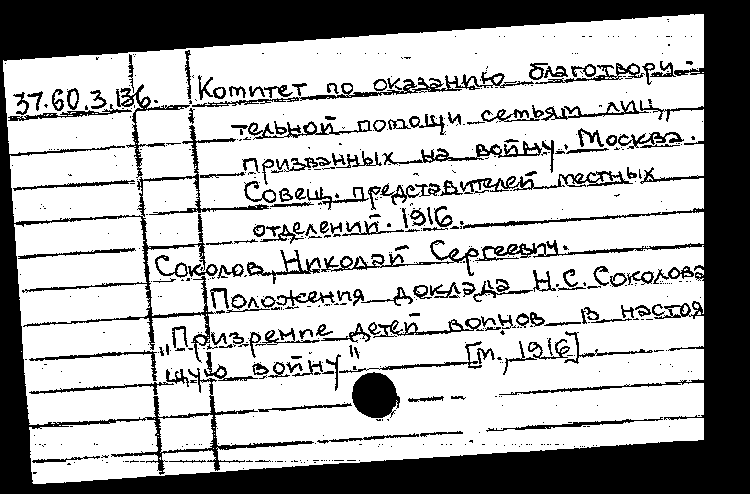 37.60.3.136. Комитет по оказанию благотвори-
тельной помощи семьям лиц,
призванных на войну. Москва.
Совещ. представителей местных
отделений. 1916.
Соколов, Николай Сергеевич.
Положения доклада Н.С. Соколова
„Призрение детей воинов в настоя
щую войну". [М., 1916].